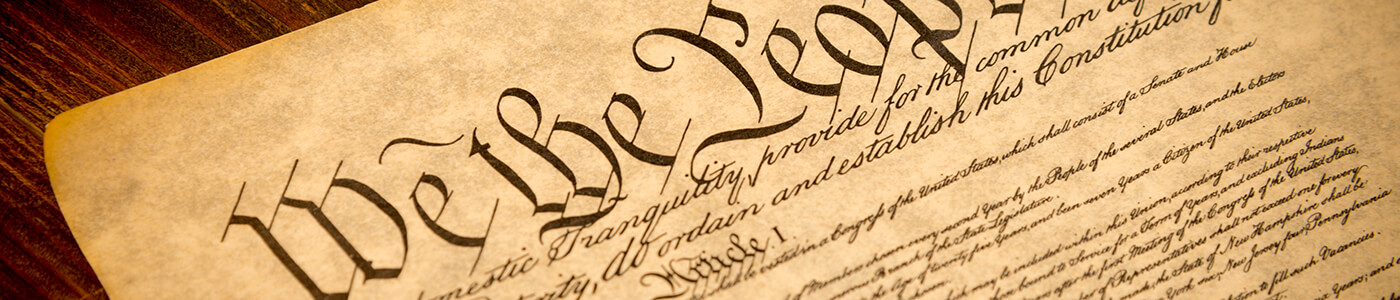 We the Peop
mestic Tranquility, provide for the common
terity, do ordain and establish this Constitution
Article I.
be vested in a Congress of the United States, which shall consist of a Senate and House
of Members chosen every second Year by the People of the several States, and the Electors
Branch of the State Legislature.
the Age of twenty five Years, and been seven Years a Citizen of the United States,
may be included within this Union, according to their respective
bound to Service for a Term of Years, and excluding Indians
after the first Meeting of the Congress of the United States,
of Representatives shall not exceed one for every
made, the State of New Hampshire shall be
York six, New Jersey four, Pennsylvania
to fill such Vacancies.
Years; and